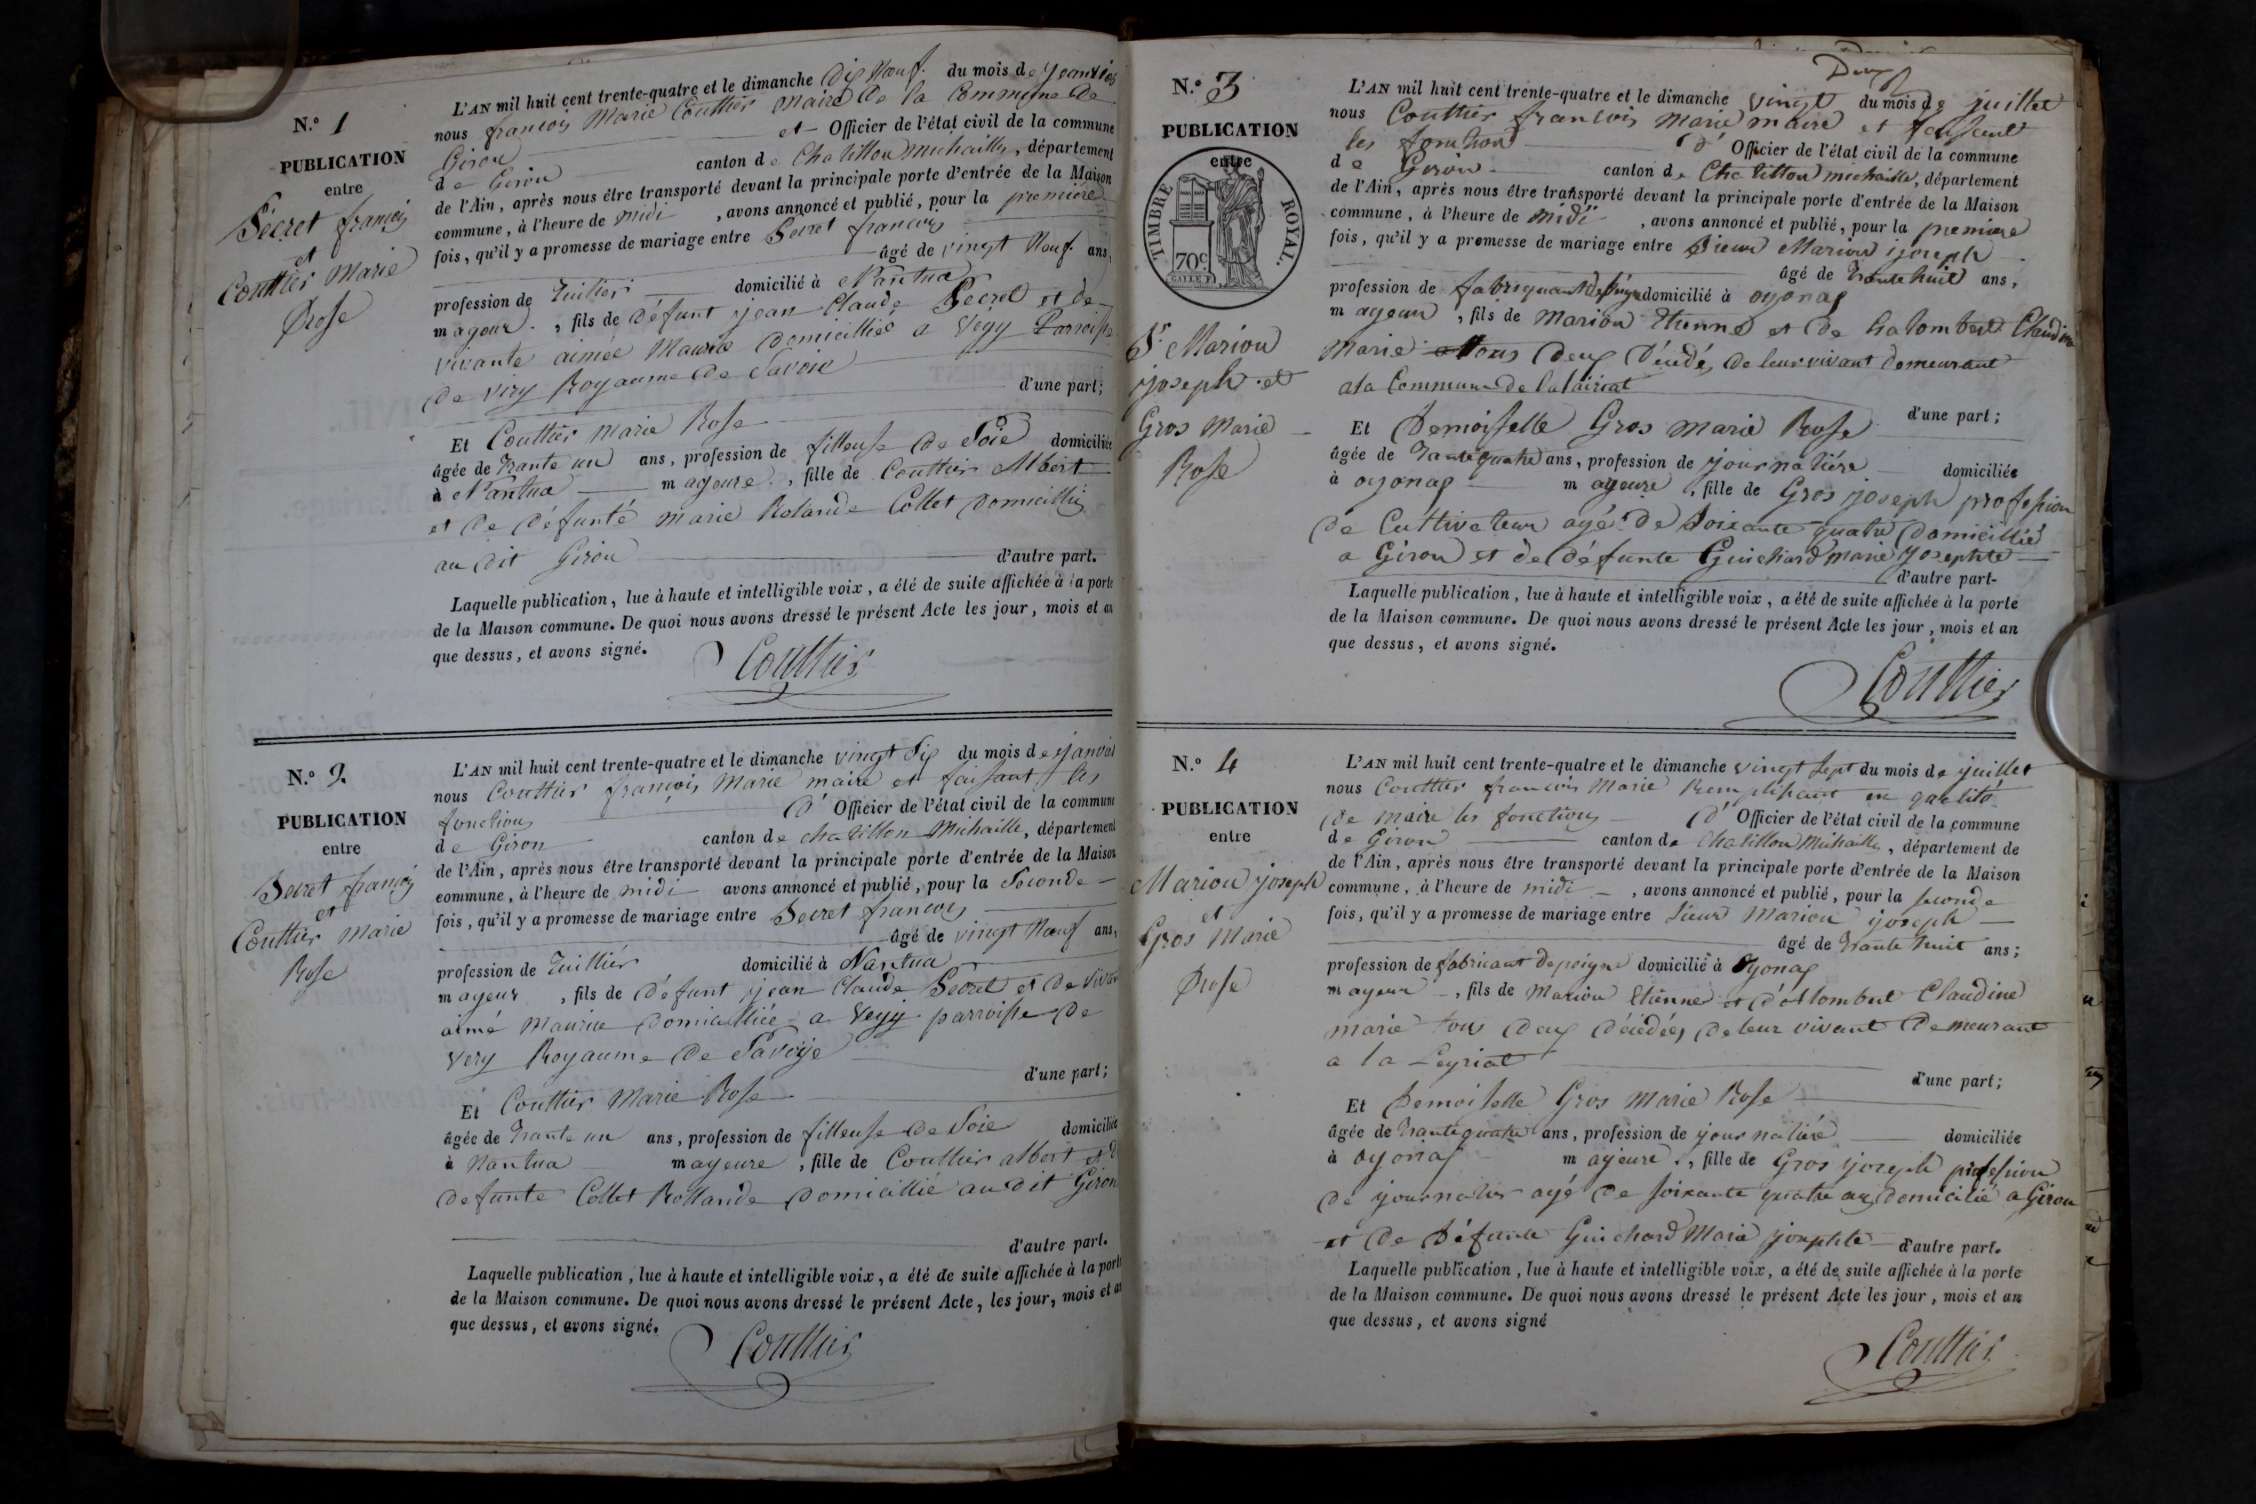 N.º 1
PUBLICATION
entre
Secret françois
et
Couttier Marie
Rose
L'AN mil huit cent trente-quatre et le dimanche dix Neuf du mois de Janvier
nous francois Marie Couttier Maire de la Commune de
Giron et Officier de l'état civil de la commune
de Giron canton de Chatillon michaille, département
de l'Ain, après nous être transporté devant la principale porte d'entrée de la Maison
commune, à l'heure de midi, avons annoncé et publié, pour la premiere
fois, qu'il y a promesse de mariage entre Secret francois
âgé de vingt Neuf ans,
profession de Tuilier domicilié à Nantua
mageur, fils de défunt jean Claude Secret et de
vivante aimée Maurice domicilliée a Végy Parroisse
de viry Royaume de Savoie
d'une part;
Et Couttier Marie Rose
âgée de Trante un ans, profession de filleuse de Soie domiciliée
à Nantua mageure, fille de Couttier Albert
et de défunte marie Rolande Collet domicillié
au dit Giron d'autre part.
Laquelle publication, lue à haute et intelligible voix, a été de suite affichée à la porte
de la Maison commune. De quoi nous avons dressé le présent Acte les jour, mois et an
que dessus, et avons signé.
Couttier
N.º 2
PUBLICATION
entre
Secret françois
et
Couttier Marie
Rose
L'AN mil huit cent trente-quatre et le dimanche vingt Six du mois de janvier
nous Couttier françois Marie maire et faisant les
fonctions d' Officier de l'état civil de la commune
de Giron canton de chatillon Michaille, département
de l'Ain, après nous être transporté devant la principale porte d'entrée de la Maison
commune, à l'heure de midi avons annoncé et publié, pour la Seconde
fois, qu'il y a promesse de mariage entre Secret francois
âgé de vingt Neuf ans,
profession de Tuillier domicilié à Nantua
mageur, fils de défunt jean Claude Secret et de vivan
aimé maurice domicilliée a Veyy parroisse de
Very Royaume de Savoye
d'une part;
Et Couttier Marie Rose
âgée de Trante un ans, profession de filleuse de Soie domiciliée
à Nantua mageure, fille de Couttier albert et d
defunte Collet Rollande domicillié au dit Giron
d'autre part.
Laquelle publication, lue à haute et intelligible voix, a été de suite affichée à la porte
de la Maison commune. De quoi nous avons dressé le présent Acte, les jour, mois et an
que dessus, et avons signé.
Couttier
Deux
N.º 3
PUBLICATION
entre
TIMBRE ROYAL.
70c
Sr Mariou
joseph et
Gros Marie
Rose
L'AN mil huit cent trente-quatre et le dimanche vingt du mois de juillet
nous Couttier francois Marie maire et faisant
les fonction d' Officier de l'état civil de la commune
de Giron canton de Chatillon michaille, département
de l'Ain, après nous être transporté devant la principale porte d'entrée de la Maison
commune, à l'heure de midi, avons annoncé et publié, pour la premiere
fois, qu'il y a promesse de mariage entre Sieur Mariou joseph
âgé de Trante huit ans,
profession de fabriquant de domicilié à oyonax
mageur, fils de Mariou Etienne et de Claudine
marie tous deux décédés de leur vivant demeurant
a la Commune de
d'une part;
Et Demoiselle Gros marie Rose
âgée de Trante quatre ans, profession de journalière domiciliée
à oyonax mageure, fille de Gros joseph profession
de Cultivateur agé de Soixante quatre domicillié
a Giron et de défunte Guichard marie Josephte
d'autre part.
Laquelle publication, lue à haute et intelligible voix, a été de suite affichée à la porte
de la Maison commune. De quoi nous avons dressé le présent Acte les jour, mois et an
que dessus, et avons signé.
Couttier
N.º 4
PUBLICATION
entre
Mariou joseph
et
Gros Marie
Rose
L'AN mil huit cent trente-quatre et le dimanche vingt sept du mois de juillet
nous Couttier francois Marie Remplissant en qualité
de maire les fonctions d' Officier de l'état civil de la commune
de Giron canton de Chatillon Michaille, département de
de l'Ain, après nous être transporté devant la principale porte d'entrée de la Maison
commune, à l'heure de midi, avons annoncé et publié, pour la seconde
fois, qu'il y a promesse de mariage entre Sieur Mariou joseph
âgé de Trante huit ans;
profession de fabricant de peigne domicilié à Oyonax
mageur, fils de Mariou Etienne et Claudine
marie tous deux décédés de leur vivant demeurant
a la Leyriat
d'une part;
Et Demoiselle Gros Marie Rose
âgée de Trante quatre ans, profession de journalière domiciliée
à oyonax mageure, fille de Gros joseph profession
de journalier agé de soixante quatre ans domicilié a Giron
et de Défunte Guichard Marie josephte d'autre part.
Laquelle publication, lue à haute et intelligible voix, a été de suite affichée à la porte
de la Maison commune. De quoi nous avons dressé le présent Acte les jour, mois et an
que dessus, et avons signé
Couttier